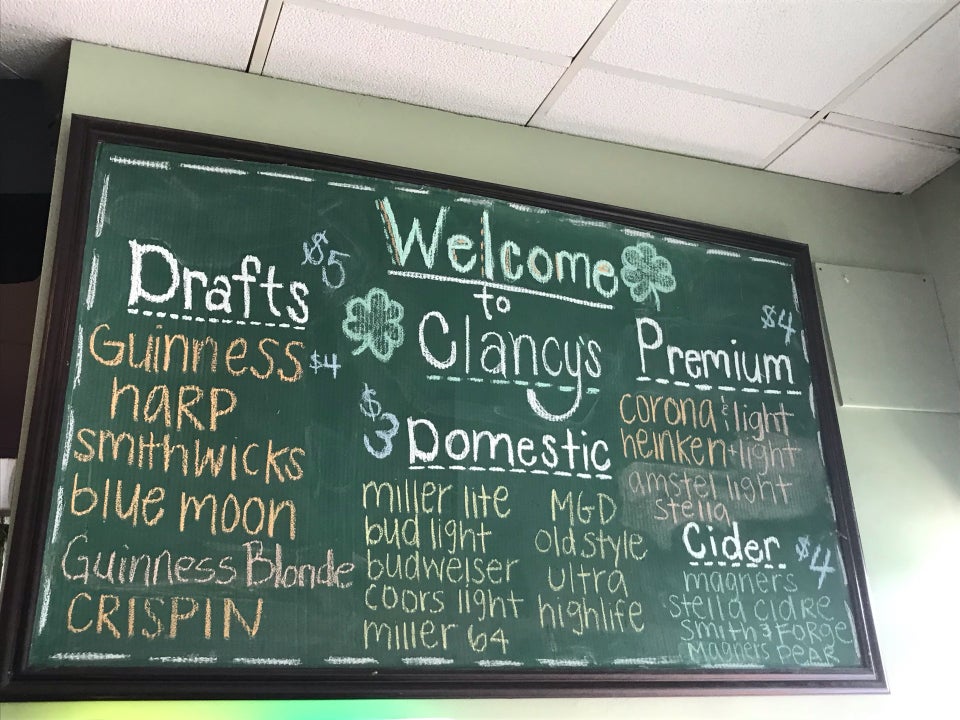 Welcome
to
Clancy's
Drafts $5
Guinness $4
HARP
smithwicks
blue moon
Guinness Blonde
CRISPIN
$3 Domestic
miller lite
bud light
budweiser
coors light
miller 64
MGD
old style
ultra
highlife
Premium $4
corona & light
heinken + light
amstel light
stella
Cider $4
magners
stella cidre
Smith & FORGE
Magners PEAR